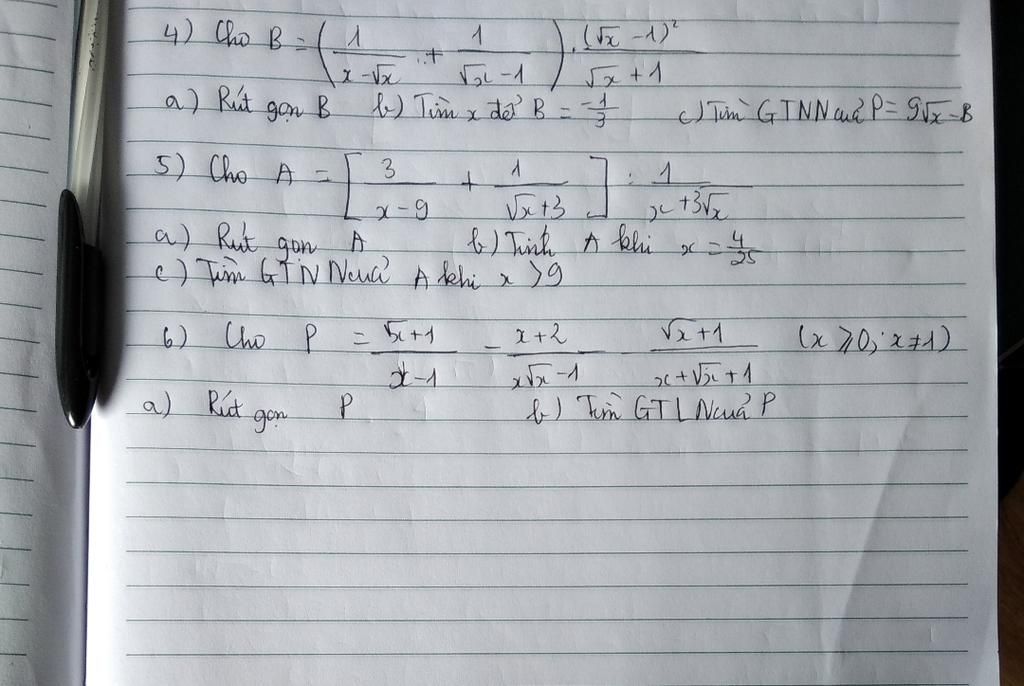 4) Cho B = (1/(x-√x) + 1/(√x-1)) . (√x-1)²/(√x+1)
a) Rút gọn B b) Tìm x để B = -1/3 c) Tìm GTNN của P = 9√x-B
5) Cho A = [3/(x-9) + 1/(√x+3)] : 1/(x+3√x)
a) Rút gọn A b) Tính A khi x = 4/25
c) Tìm GTNN của A khi x > 9
6) Cho P = (√x+1)/(x-1) - (x+2)/(x√x-1) - (√x+1)/(x+√x+1) (x ≥ 0; x ≠ 1)
a) Rút gọn P b) Tìm GTLN của P